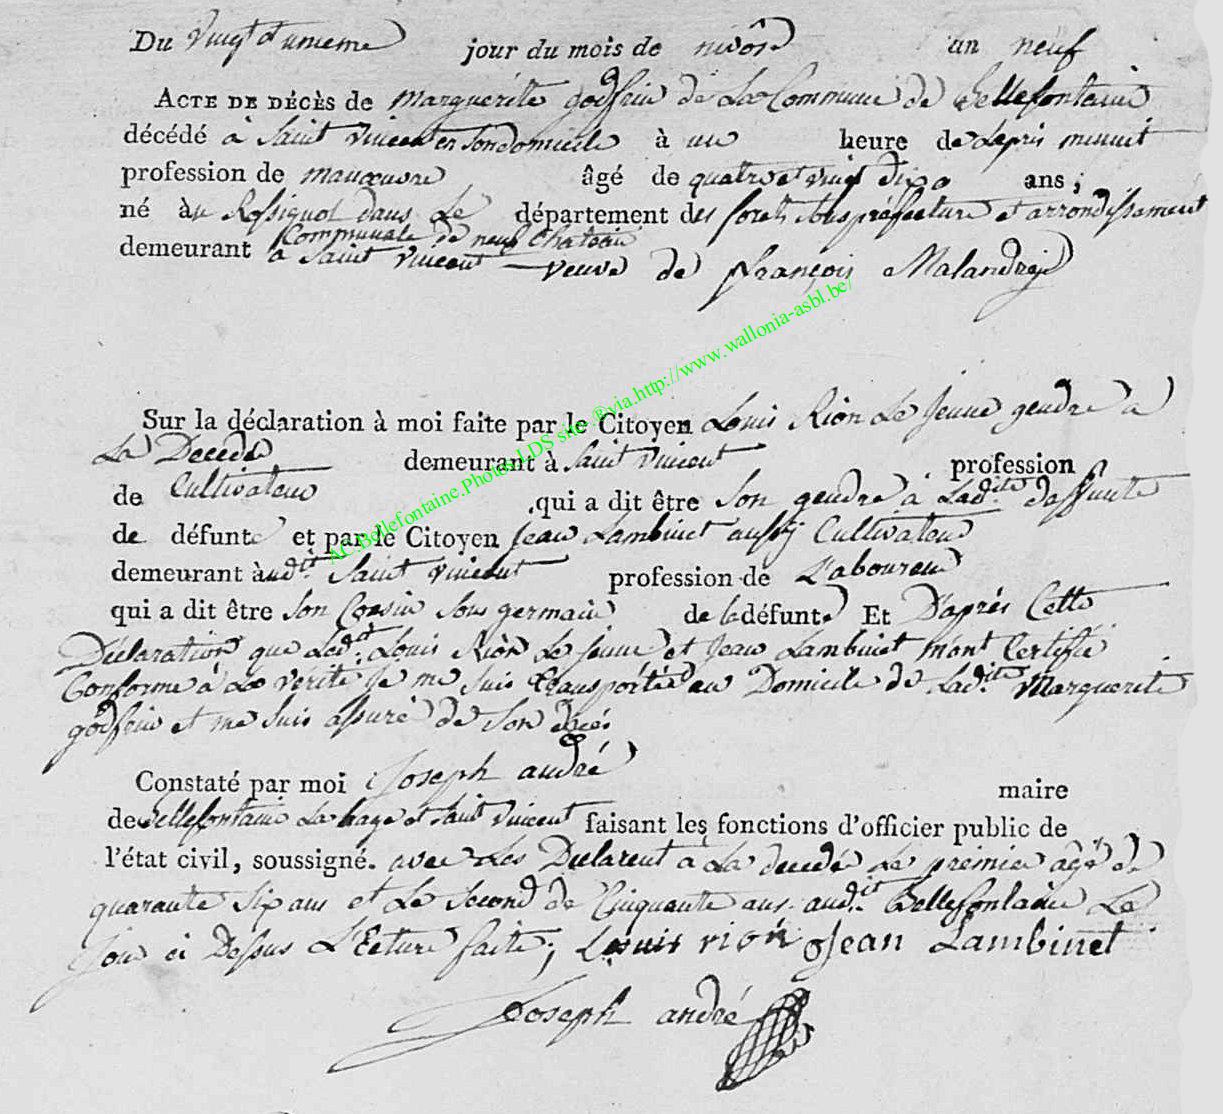 Du vingt et unieme jour du mois de nivôse an neuf
ACTE DE DÉCÈS de Marguerite godfrin de La Commune de Bellefontaine
décédé à Saint vincent en son domicile à une heure de depris minuit
profession de manœuvre âgé de quatre et vingt dix ans ;
né à Rossignol dans Le département des forets sous préfecture et arrondissement
Communale de neufchateau
demeurant a Saint vincent veuve de françois Malandrji
Sur la déclaration à moi faite par le Citoyen Louis Rion Le Jeune gendre a
La Décédé demeurant à Saint vincent profession
de Cultivateur qui a dit être Son gendre à Ladite deffunte
de défunte et par le Citoyen Jean Lambinet aussÿ Cultivateur
demeurant à audit Saint vincent profession de L'aboureur
qui a dit être Son Coesin Sous germain de la défunte Et D'aprés Cette
Déclaration que Ledit Louis Rion Le Jeune et Jean Lambinet m'ont Certifié
Conforme à La vérité Je me Suis transporté au Domicile de Ladite Marguerite
godfrin et me Suis assuré de Son décés
Constaté par moi Joseph andré maire
de Bellefontaine Lahage et Saint vincent faisant les fonctions d'officier public de
l'état civil, soussigné. avec Les Déclarent a La decedé Le premier agé de
quarante Six ans et Le Second de Cinquante ans. audit Bellefontaine Le
Jour ci Dessus L'Ecture faite ; Louis rion Jean Lambinet
Joseph andré
AC.Bellefontaine.Photos.LDS site.®via.http://www.wallonia-asbl.be/